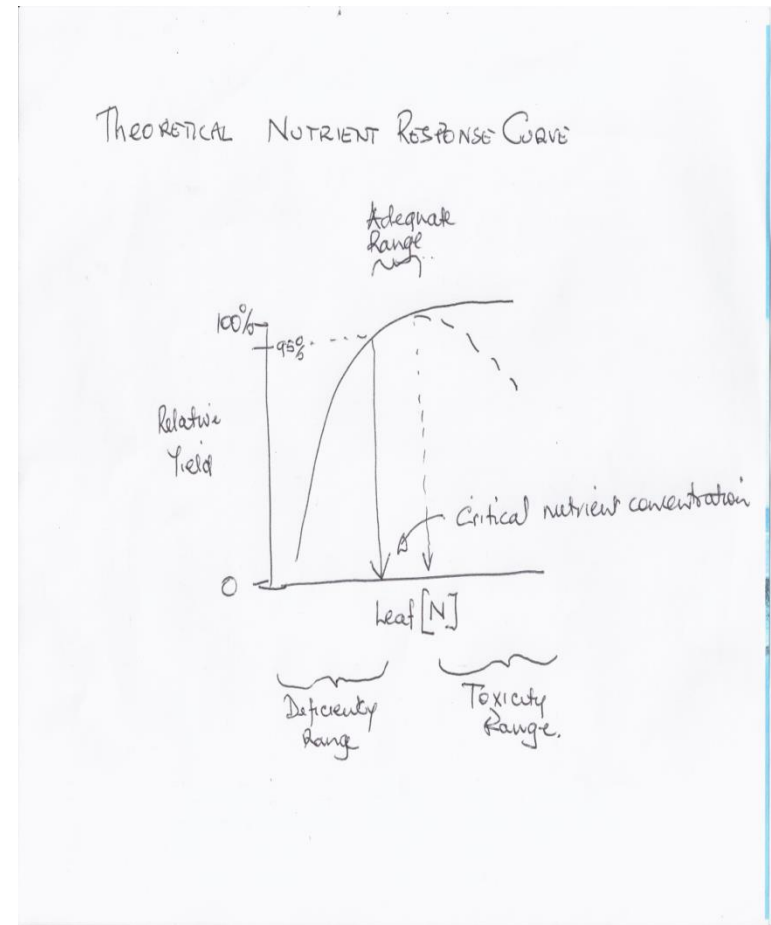 THEORETICAL NUTRIENT RESPONSE CURVE
Adequate
Range
100%
95%
Relative
Yield
Critical nutrient concentration
0
Leaf [N]
Deficiency
Range
Toxicity
Range.